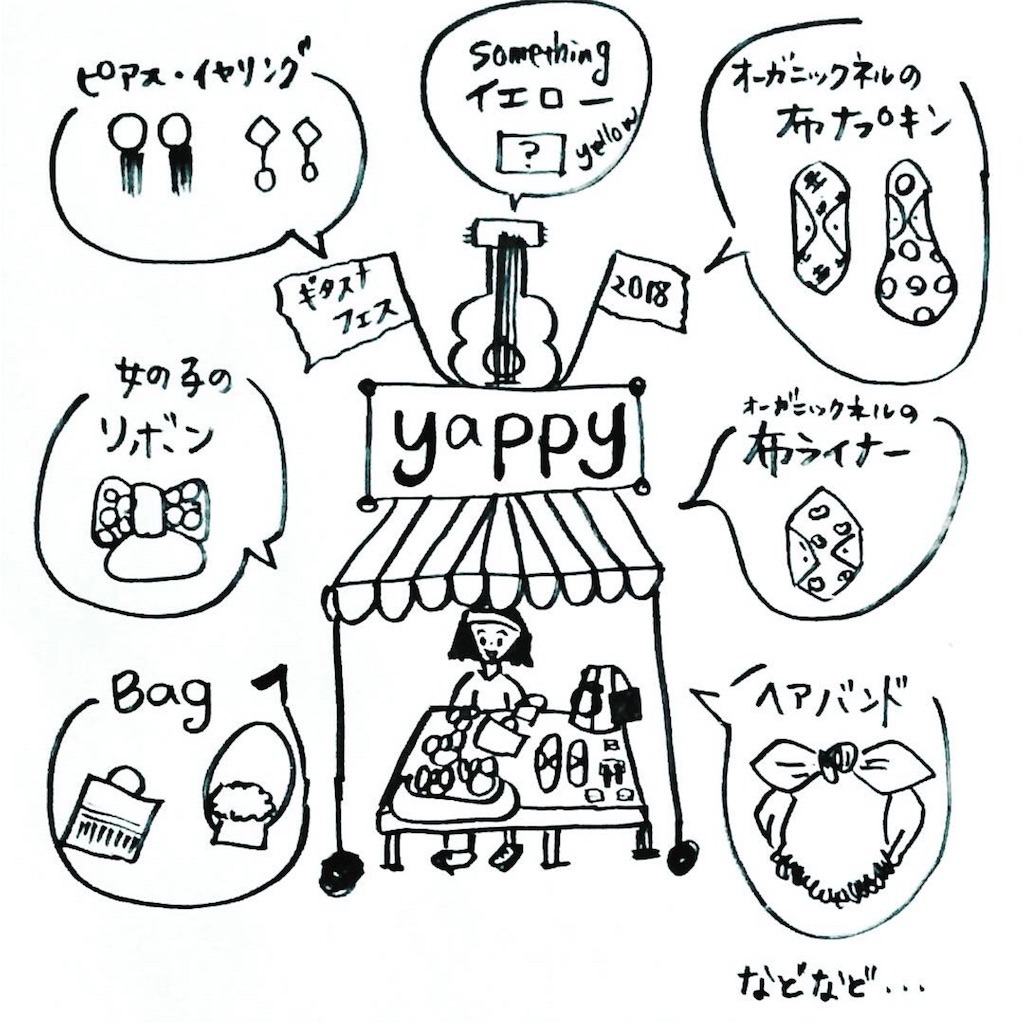 ピアス・イヤリング
something
イエロー
?
yellow
オーガニックネルの
布ナプキン
ギタスナ
フェス
2018
女の子の
リボン
yappy
オーガニックネルの
布ライナー
Bag
ヘアバンド
などなど・・・